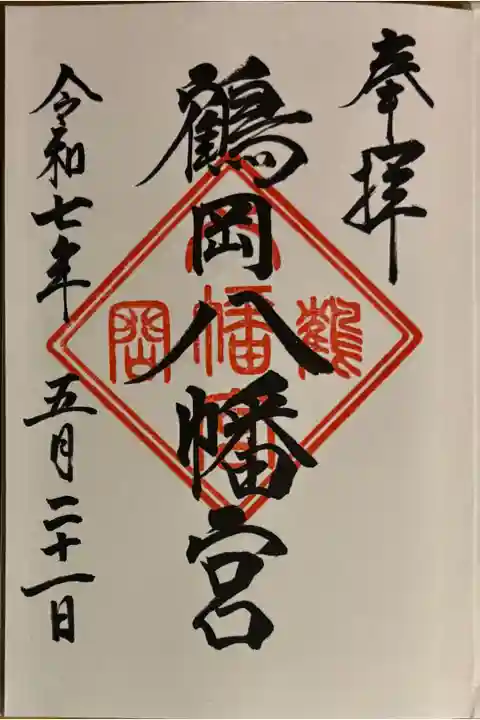 奉拝
鶴岡八幡宮
鶴
岡
八幡宮
令和七年 五月二十一日